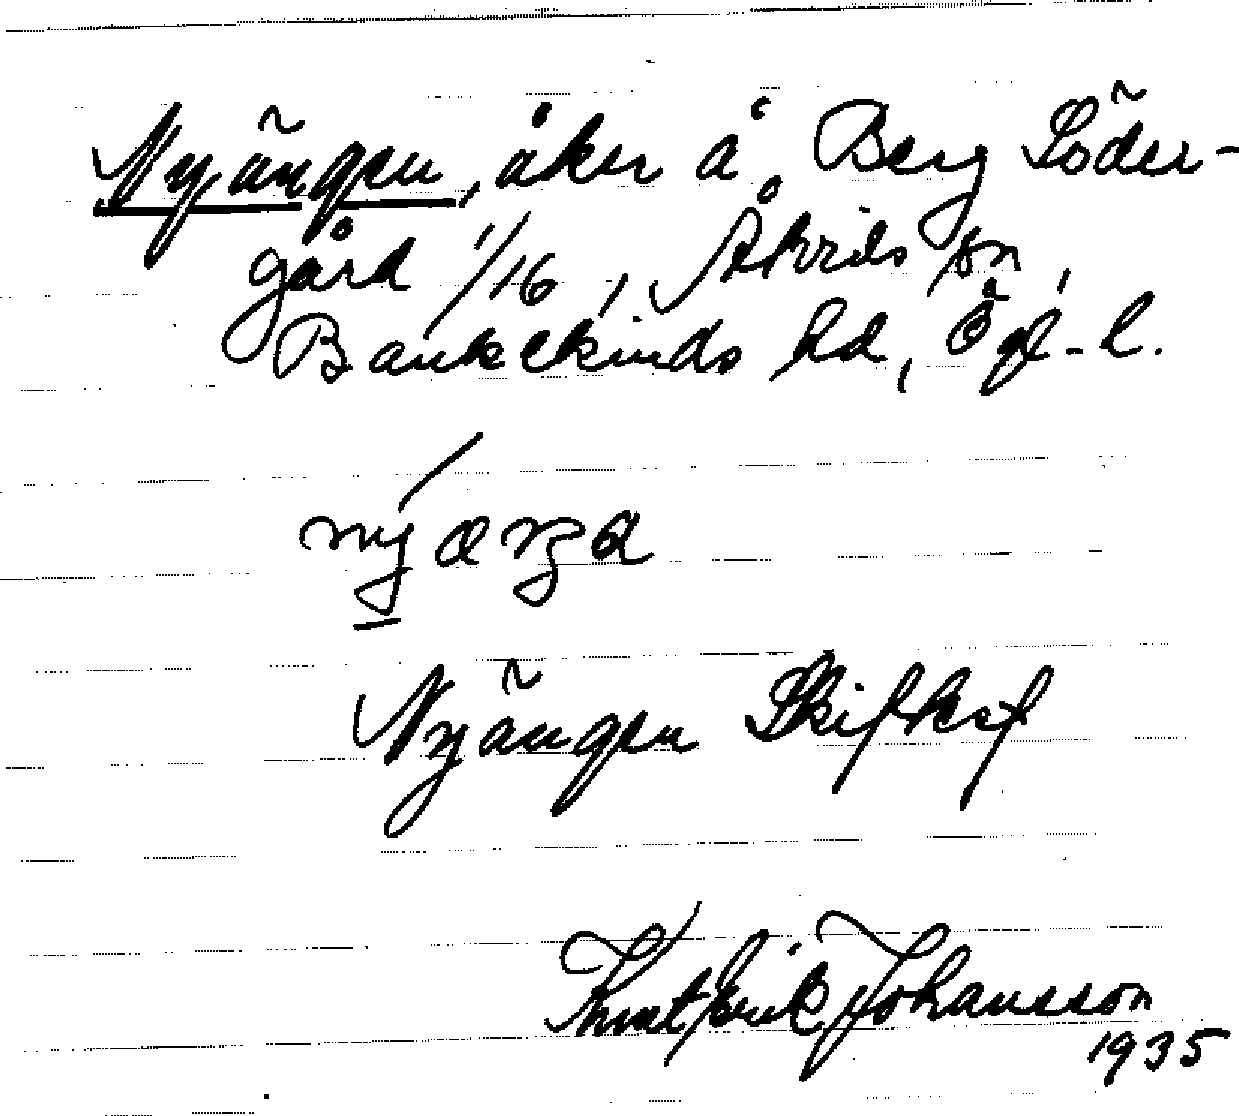 Nyängen, åker å Berg Söder-
gård 1/16, Åkrids sn,
Bankekinds hd, Ög. l.
nýæŋa
Nyängen Skifksf
Knut Erik Johansson
1935